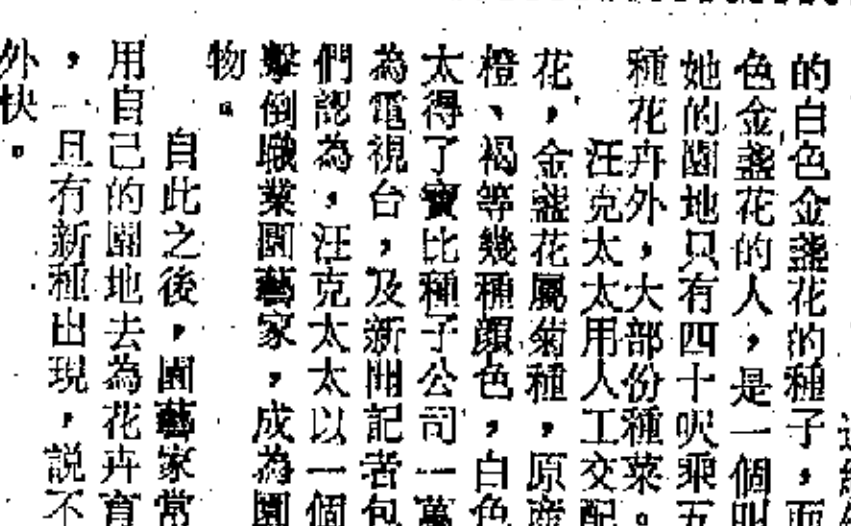 的白色金盞花的種子，而
色金盞花的人，是一個叫
她的園地只有四十呎乘五
種花卉外，大部份種菜。
汪克太太用人工交配
花，金盞花屬菊種，原產
橙、褐等幾種顏色，白色
太得了寶比種子公司一萬
為電視台，及新聞記者包
們認為，汪克太太以一個
擊倒職業園藝家，成為園
物。
自此之後，園藝家常
用自己的園地去為花卉育
，一旦有新種出現，説不
外快。